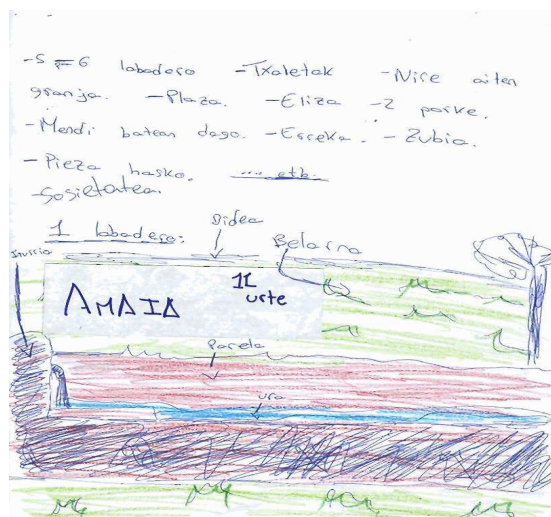 -5=6 labadero -Txaletak -Nire aiten
granja. -Plaza. -Eliza -2 parke.
-Mendi batean dago. -Erreka. -Zubia.
-Pieza hasko. .... etb.
-Sosietatea.
1 labadero:
Bidea
Belarra
Iturria
AMAIA
11
urte
Parela
ura